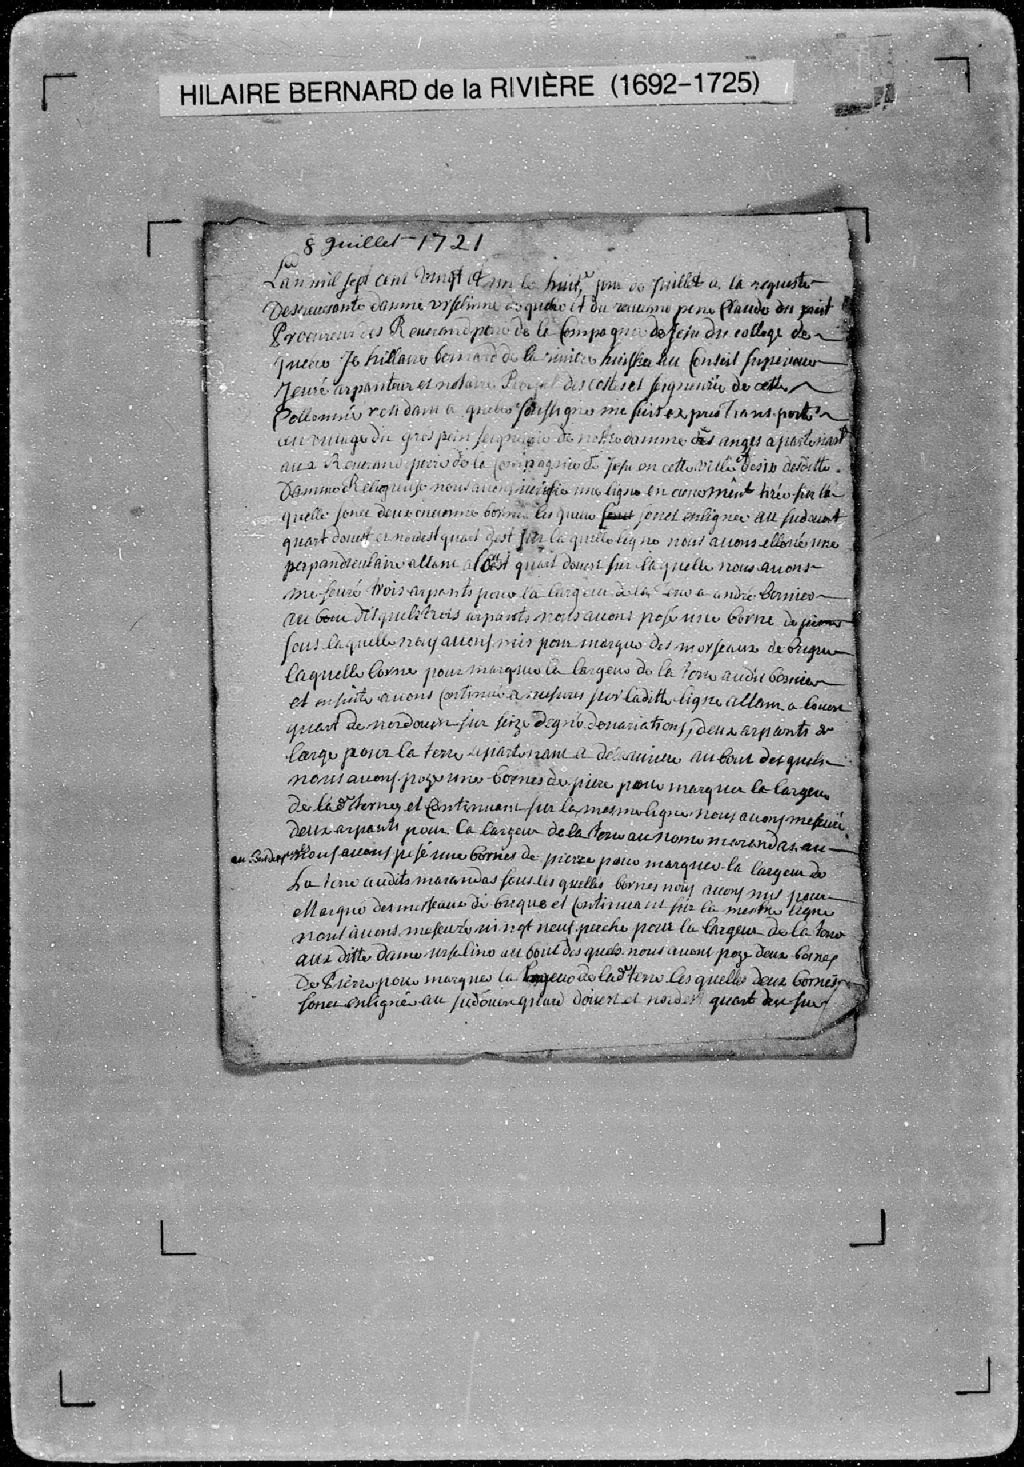 HILAIRE BERNARD de la RIVIÈRE (1692-1725)
8 Juillet 1721
Lan mil sept cent vingt et un le huit.e jour de Juillet a la requeste
Des dame ursuline de quebec et du reuerans pere Claude du puit
Procureur des Reuerand pere de la Compagnie de Jesu du college de
quebec Je hillaire bernard de la riuiere huissier au Conseil superieure
Jeuré arpanteur et notaire Royal des costes et seigneurie de cette
Collonnie residam a quebec soussigné me suis expres transporté
au uilage du gros pein seigneurie de notre damme des anges apartenant
aux Reuerand pere de la Compagnie de Jesu en cette uille
Damme Religieuse nous auons une ligne en tirée sur la
quelle sonct deux encienne bornes les quelle sonct enlignee au sudouest
quart douest et nordest quart dest sur la quelle ligne nous auons une
perpandiculaire allant a quart douest sur laquelle nous auons
meseuré trois arpants pour la largeur de la terre a andré bernier
au bout desquels trois arpants nous auons posé une borne de pierre
sous laquelle nous auons mis pour marque des morseaux de brique
laquelle borne pour marquer la largeur de la terre audit bernier
et ensuite auons continué a mesurer sur laditte ligne allant a louest
quart de nordouest sur seize degré deuariations, deux arpants de
large pour la terre apartenant a au bout desquels
nous auons poze une bornes de piere pour marquer la largeur
de lad.e terres et Continuant sur la mesme ligne nous auons meseuré
deux arpants pour la largeur de la terre au nome morandas au
au bout desquels nous auons posé une bornes de pierre pour marquer la largeur de
La terre audits marandas sous les quelles bornes nous auons mis pour
Marque des morseaux de brique et Continuant sur la mesme ligne
nous auons meseuré uingt neuf perche pour la largeur de la terre
aux ditte dame urseline au bout des quels nous auons poze deux bornes
De Pierre pour marquer la largeur de lad.e terre les quelle deux bornes
sonct enligné au sudouest quard douest et nordest quart dest sur